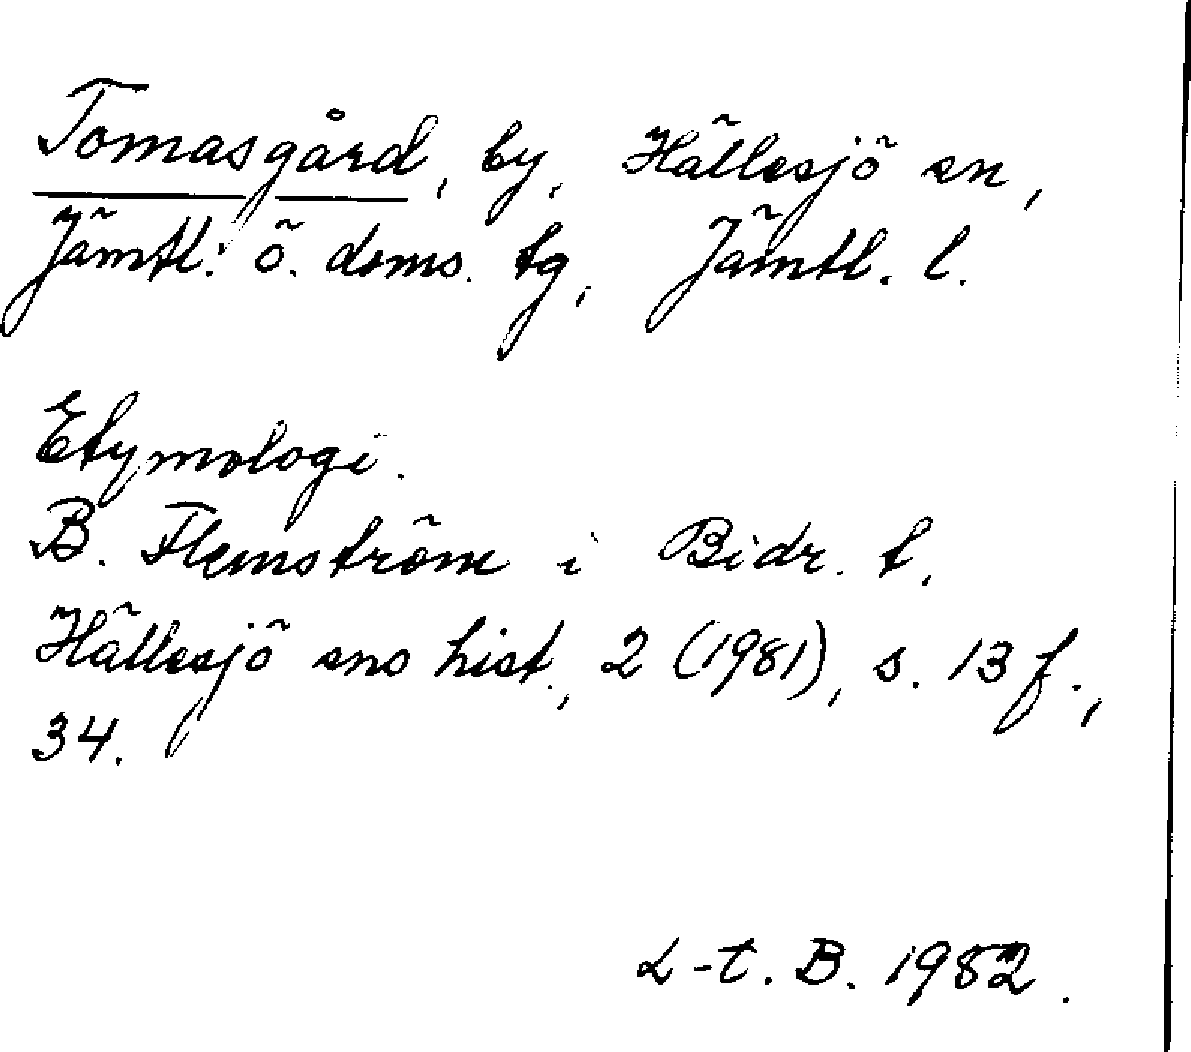 Tomasgård, by, Hällesjö sn,
Jämtl:s ö. doms. tg, Jämtl. l.
Etymologi.
B. Flemström i Bidr. t.
Hällesjö sns hist., 2 (1981), s. 13 f.,
34.
L-t. B. 1982.